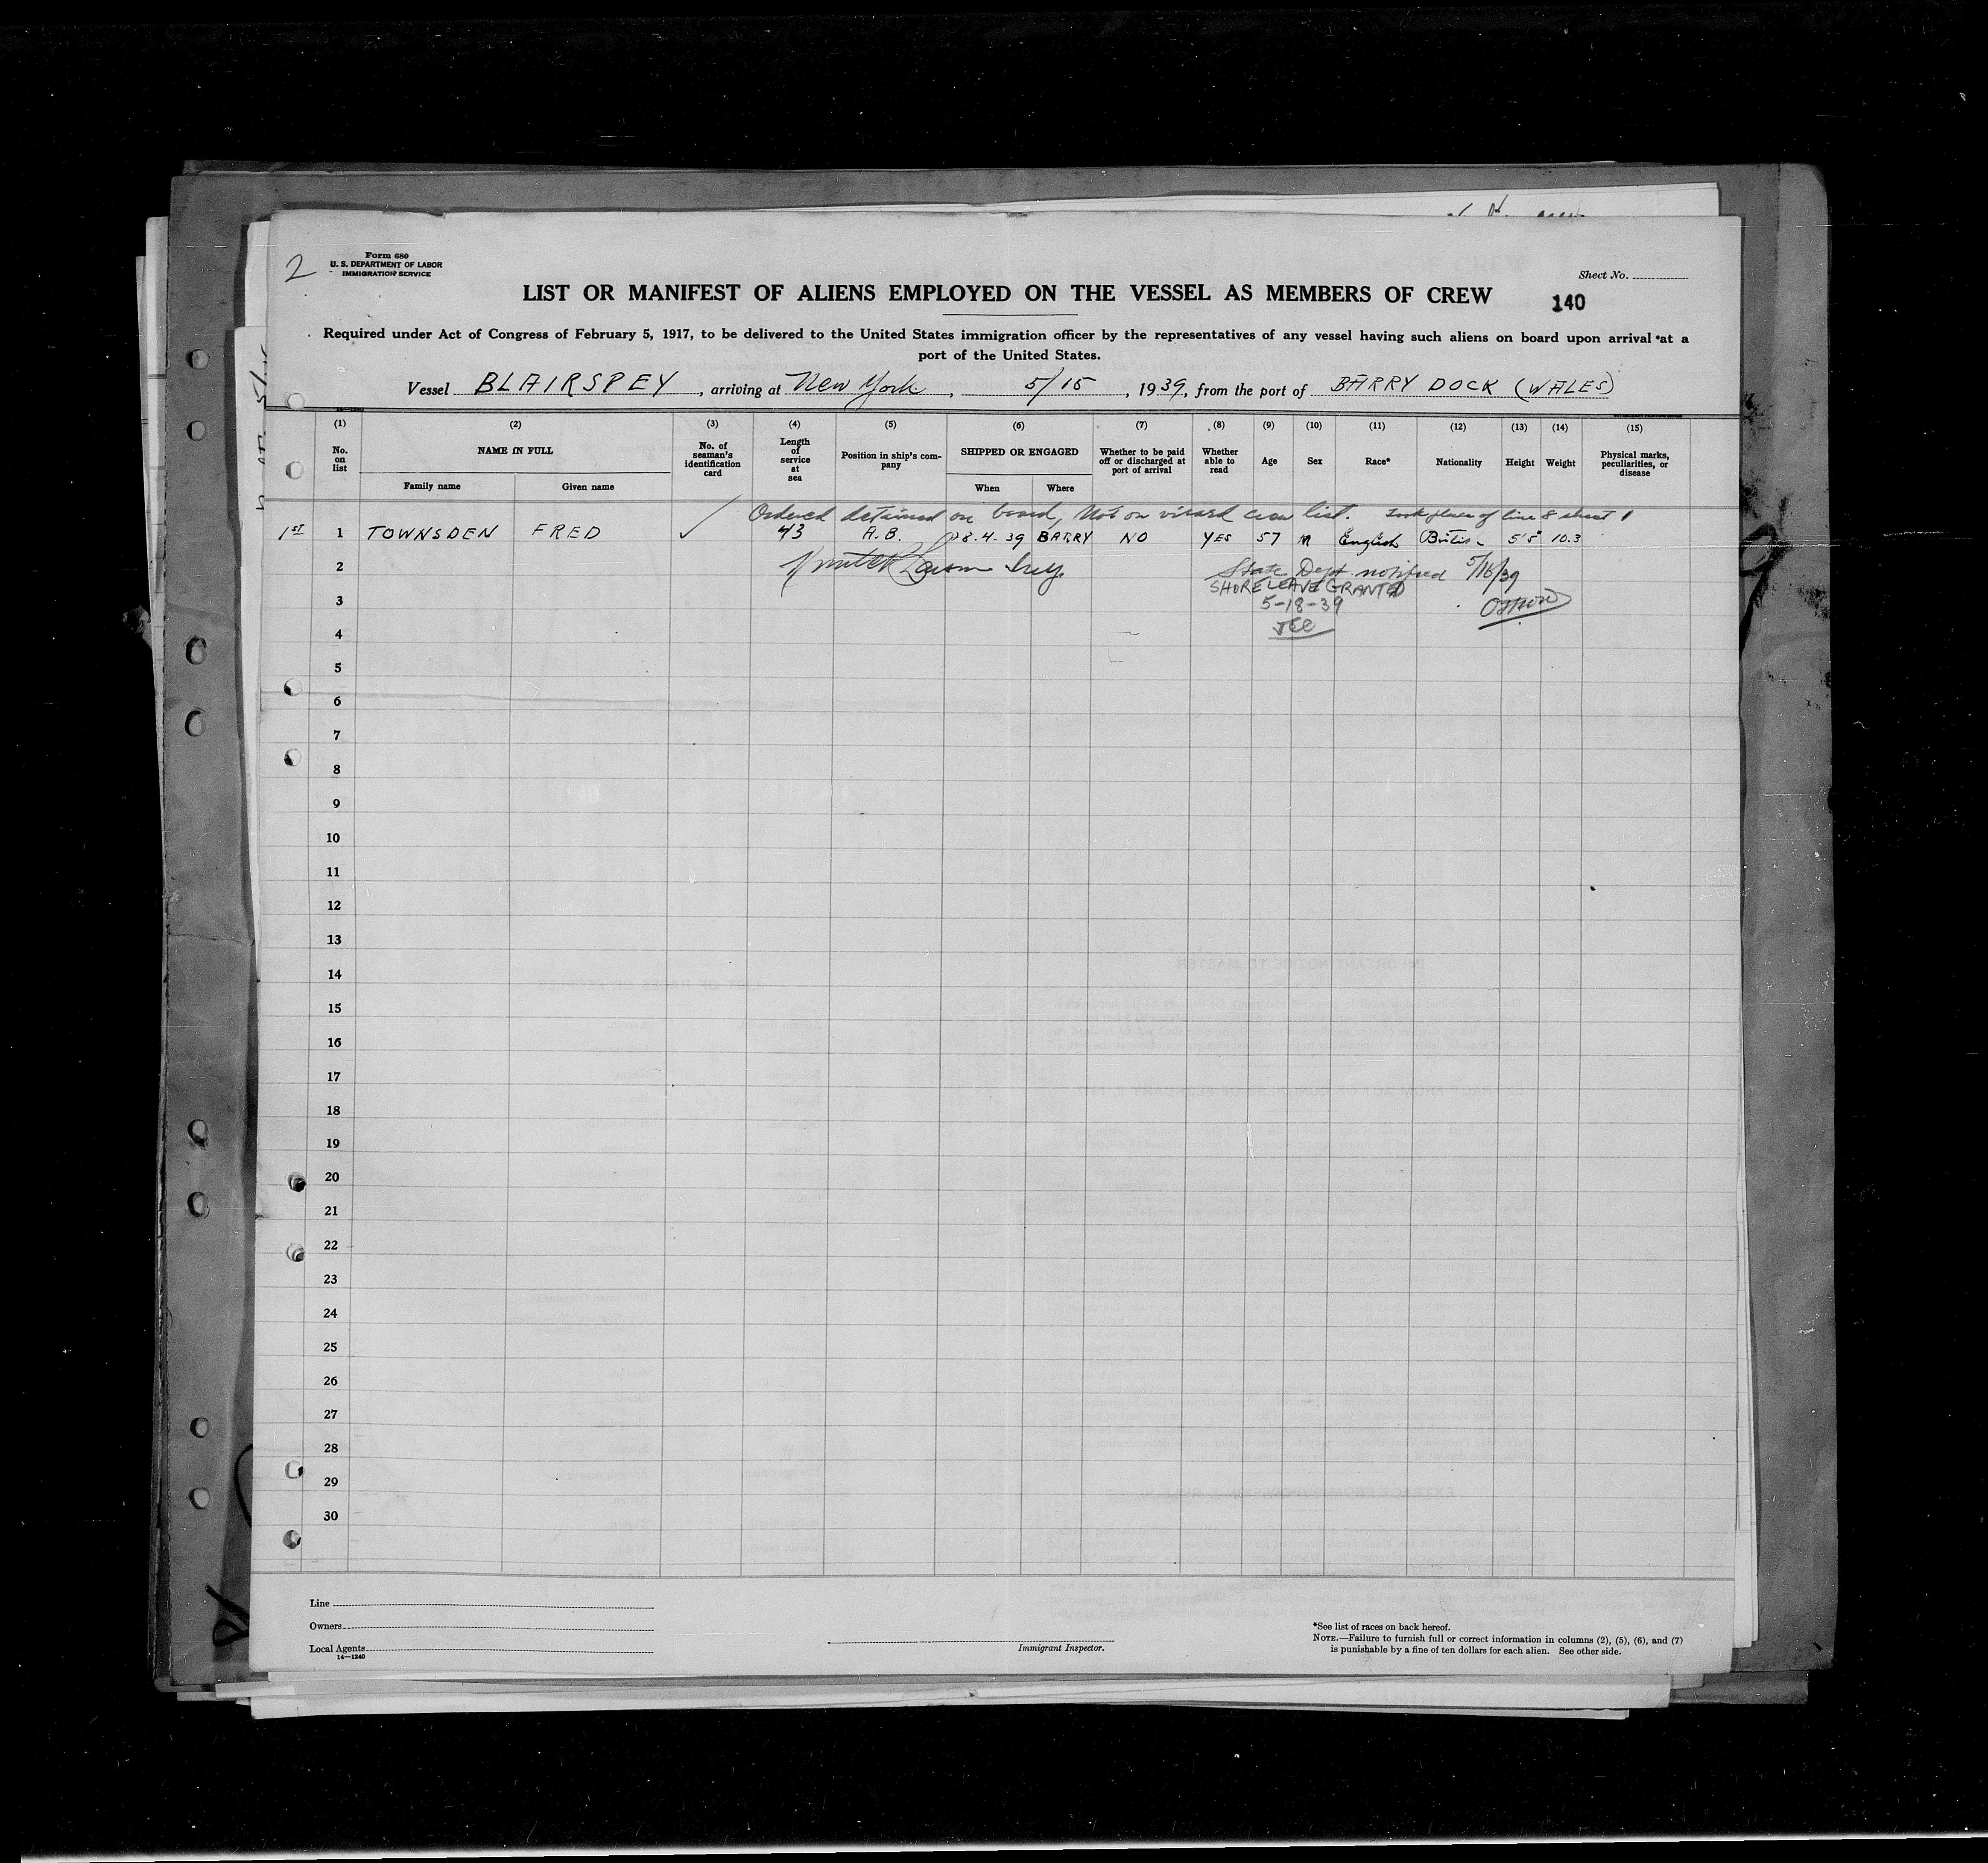 2
Form 680
U. S. DEPARTMENT OF LABOR
IMMIGRATION SERVICE
Sheet No.
LIST OR MANIFEST OF ALIENS EMPLOYED ON THE VESSEL AS MEMBERS OF CREW
140
Required under Act of Congress of February 5, 1917, to be delivered to the United States immigration officer by the representatives of any vessel having such aliens on board upon arrival at a
port of the United States.
Vessel BLAIRSPEY, arriving at New York, 5/15, 1939, from the port of BARRY DOCK (WALES)
(1) (2) (3) (4) (5) (6) (7) (8) (9) (10) (11) (12) (13) (14) (15)
No. on list
NAME IN FULL
Family name Given name
No. of seaman's identification card
Length of service at sea
Position in ship's company
SHIPPED OR ENGAGED
When Where
Whether to be paid off or discharged at port of arrival
Whether able to read
Age
Sex
Race*
Nationality
Height
Weight
Physical marks, peculiarities, or disease
Ordered detained on board, Not on visaed crew list. Took place of line 8 sheet 1
1st 1 TOWNSDEN FRED ✓ 43 A.B. 28.4.39 BARRY NO YES 57 M English British 5'5" 10.3
2 State Dept notified 5/16/39
SHORE LEAVE GRANTED
3 5-18-39
4
5
6
7
8
9
10
11
12
13
14
15
16
17
18
19
20
21
22
23
24
25
26
27
28
29
30
Line
Owners
Local Agents
14—1240
Immigrant Inspector.
*See list of races on back hereof.
NOTE.—Failure to furnish full or correct information in columns (2), (5), (6), and (7)
is punishable by a fine of ten dollars for each alien. See other side.